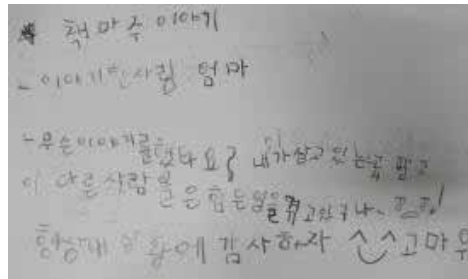 책마주이야기
- 이야기한사람 엄마
- 무슨이야기를했나요? 내가살고있는곳 말고
이 다른사람들은힘든일을겪고있구나~ 공감!
항상내 상황에감사하자 ^^고마우